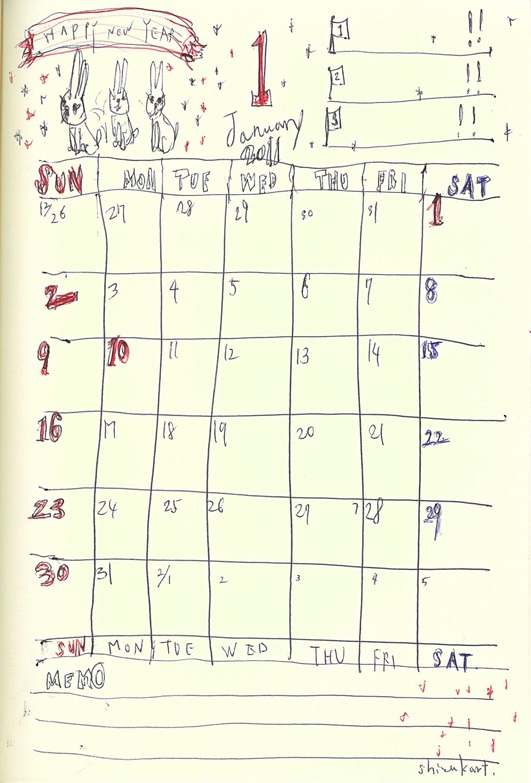 HAPPY NEW YEAR
1
January
2011
1 !!
2 !!
3 !!
SUN MON TUE WED THU FRI SAT
12/26 27 28 29 30 31 1
2 3 4 5 6 7 8
9 10 11 12 13 14 15
16 17 18 19 20 21 22
23 24 25 26 27 28 29
30 31 2/1 2 3 4 5
SUN MON TUE WED THU FRI SAT
MEMO
shizukart.